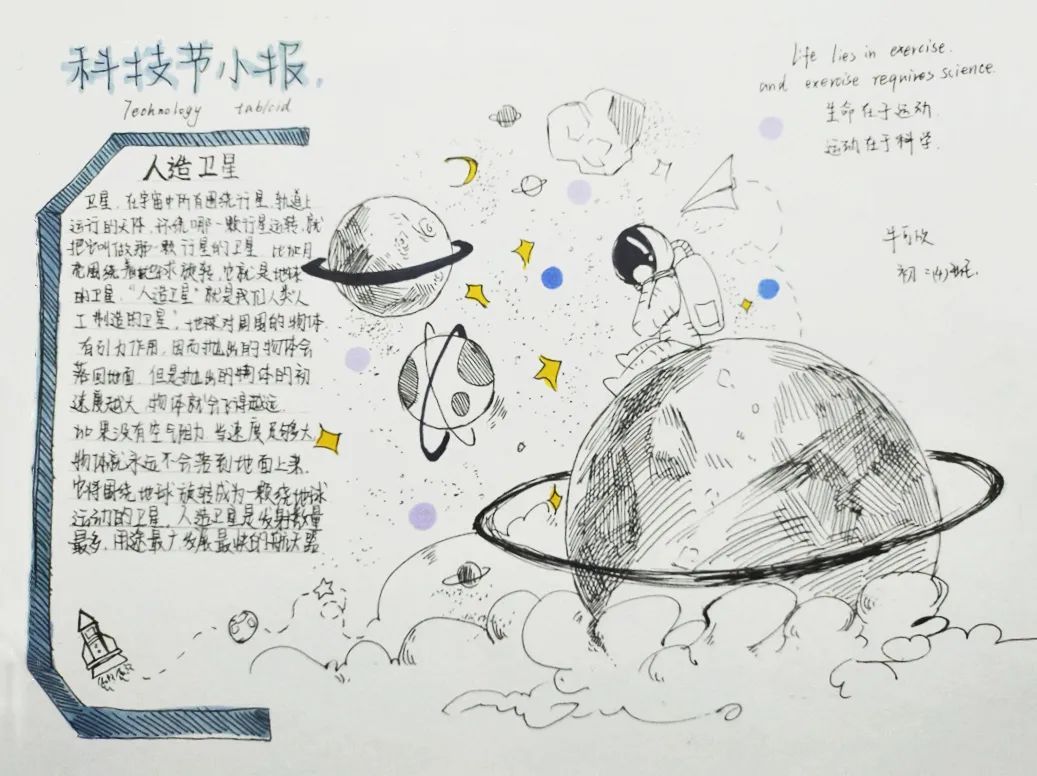 科技节小报.
Technology tabloid
人造卫星
卫星,在宇宙中所有围绕行星轨道上
运行的天体,环绕哪一颗行星运转,就
把它叫做那一颗行星的卫星.比如月
亮围绕着地球旋转,它就是地球
的卫星.“人造卫星”就是我们人类“人
工制造的卫星”,地球对周围的物体
有引力作用,因而抛出的物体会
落回地面.但是抛出的物体的初
速度越大,物体就会飞得越远.
如果没有空气阻力,当速度足够大,
物体就永远不会落到地面上来.
它将围绕地球旋转成为一颗绕地球
运动的卫星,人造卫星是发射数量
最多,用途最广,发展最快的航天器
Life lies in exercise.
and exercise requires science.
生命在于运动.
运动在于科学.
牛
初二(4)班.